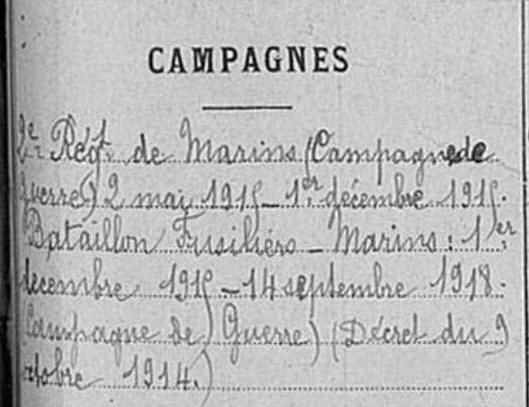 CAMPAGNES
2e Régt de Marins (Campagne de
guerre) 2 mai 1915 – 1er décembre 1915.
Bataillon Fusiliers – Marins : 1er
décembre 1915 – 14 septembre 1918.
(Campagne de Guerre) (Décret du 9
octobre 1914.)